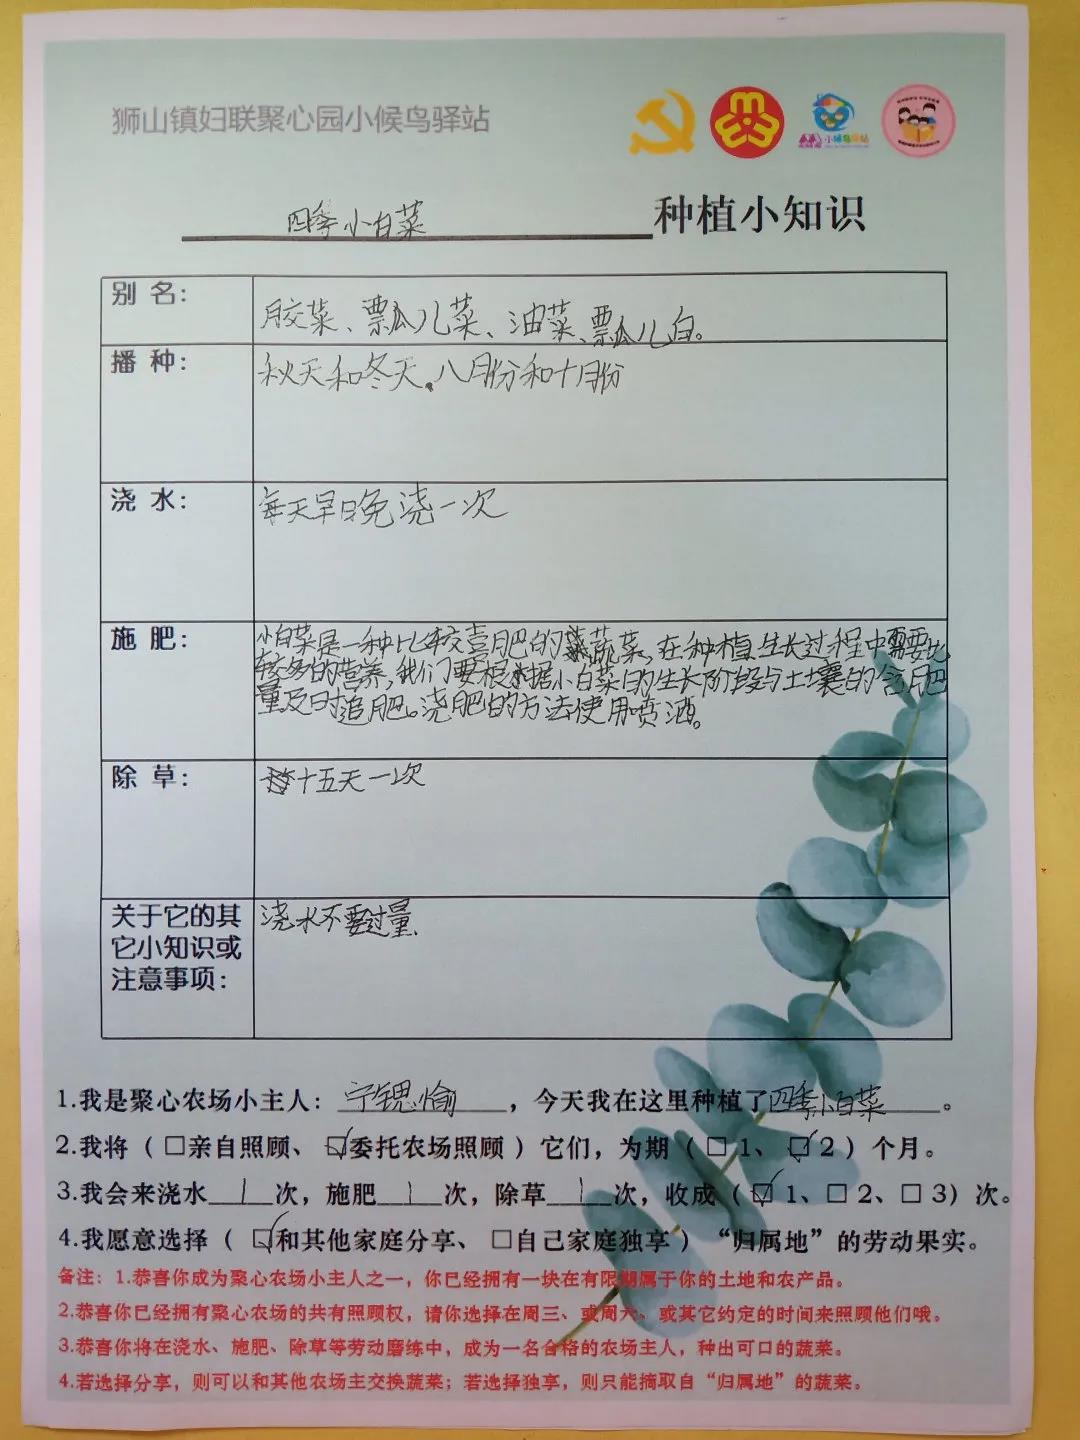 狮山镇妇联聚心园小候鸟驿站
小候鸟驿站
四季小白菜 种植小知识
别 名:
胶菜、瓢儿菜、油菜、瓢儿白。
播 种:
秋天和冬天。八月份和十月份
浇 水:
每天早晚浇一次
施 肥:
小白菜是一种比较喜肥的蔬菜,在种植生长过程中需要比
较多的营养,我们要根据小白菜的生长阶段与土壤的含肥
量及时追肥。浇肥的方法使用喷洒。
除 草:
十五天一次
关于它的其
它小知识或
注意事项:
浇水不要过量.
1.我是聚心农场小主人: 宁锶愉 ,今天我在这里种植了四季小白菜 。
2.我将(□亲自照顾、☑委托农场照顾)它们,为期(□ 1、☑ 2)个月。
3.我会来浇水 1 次,施肥 1 次,除草 1 次,收成(☑ 1、□ 2、□ 3)次。
4.我愿意选择(☑和其他家庭分享、□自己家庭独享)“归属地”的劳动果实。
备注:1.恭喜你成为聚心农场小主人之一,你已经拥有一块在有限期属于你的土地和农产品。
2.恭喜你已经拥有聚心农场的共有照顾权,请你选择在周三、或周六、或其它约定的时间来照顾他们哦。
3.恭喜你将在浇水、施肥、除草等劳动磨练中,成为一名合格的农场主人,种出可口的蔬菜。
4.若选择分享,则可以和其他农场主交换蔬菜;若选择独享,则只能摘取自“归属地”的蔬菜。